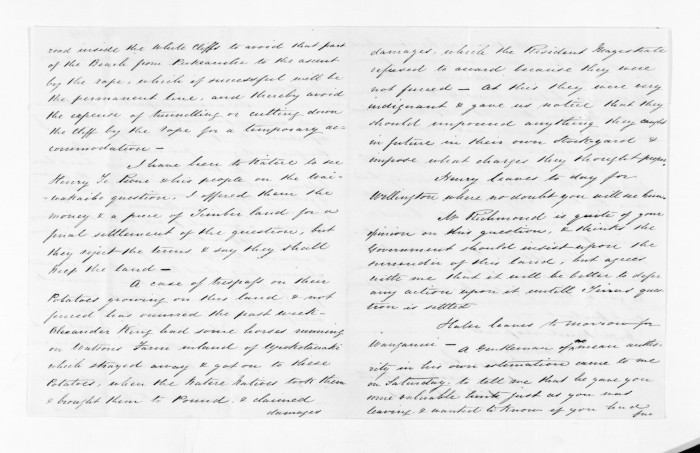 road inside the White Cliffs to avoid that part
of the Beach from Pukearuhe to the ascent
by the rope, which if successful will be
the permanent line, and thereby avoid
the expense of tunnelling or cutting down
the Cliff by the rope for a temporary ac-
commodation —
I have been to Katere to see
Henry Te Puni & his people on the Wai-
-wakaiho question, I offered them the
money & a piece of Timber land for a
final settlement of the question, but
they reject the terms & say they shall
keep the land —
A case of trespass on their
Potatoes growing on this land & not
fenced has occurred the past week —
Alexander King had some horses running
on Watsons Farm inland of
which strayed away & got on to these
Potatoes, when the Katere Natives took them
& brought them to Pound, & claimed
damages
damages, which the Resident Magistrate
refused to award because they were
not fenced — At this they were very
indignant & gave us notice that they
should impound anything they caught
in future in their own Stock-yard &
impose what charges they thought proper.
Henry leaves to day for
Wellington where no doubt you will see him
Mr Richmond is quite of your
opinion on this question, & thinks the
Government should insist upon the
surrender of this land, but agrees
with me that it will be better to defer
any action upon it untill ques-
tion is settled
leaves to morrow for
Wanganui — A Gentleman of mean autho-
rity in his own estimation came to me
on Saturday, to tell me that he gave you
some valuable hints just as you was
leaving & wanted to know if you had